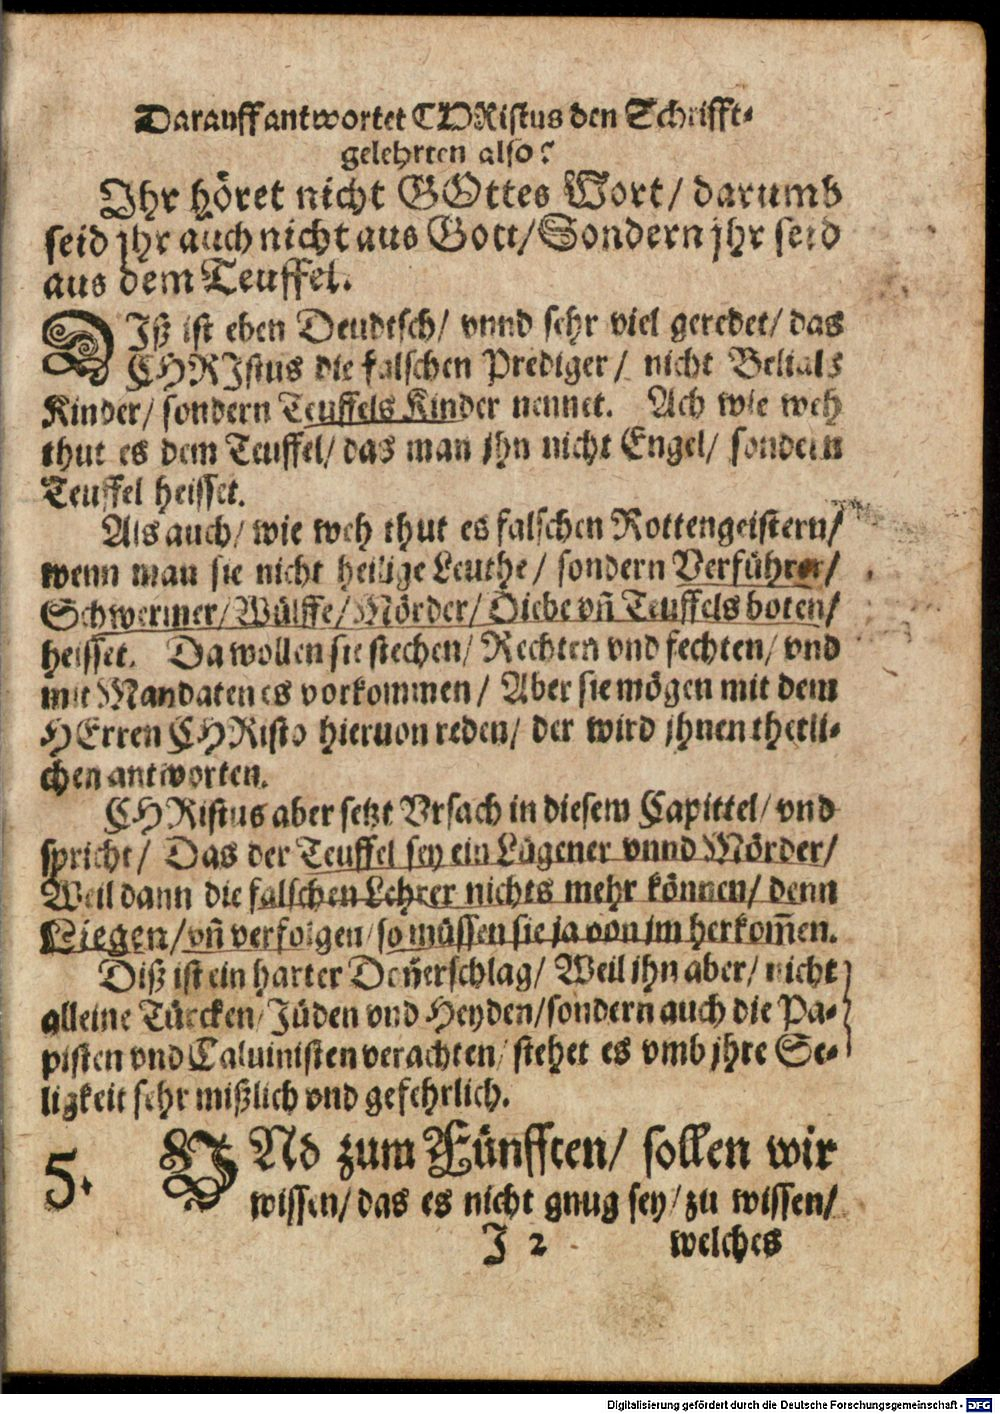 Darauff antwortet CHRistus den Schrifft-
gelehrten also:
Ihr höret nicht GOttes Wort/ darumb
seid jhr auch nicht aus Gott/ Sondern jhr seid
aus dem Teuffel.
DIß ist eben Deudtsch/ vnnd sehr viel geredet/ das
CHRIstus die falschen Prediger/ nicht Belials
Kinder/ sondern Teuffels Kinder nennet. Ach wie weh
thut es dem Teuffel/ das man jhn nicht Engel/ sondern
Teuffel heisset.
Als auch/ wie weh thut es falschen Rottengeistern/
wenn man sie nicht heilige Leuthe/ sondern Verführer/
Schwermer/ Wülffe/ Mörder/ Diebe vñ Teuffels boten/
heisset. Da wollen sie stechen/ Rechten vnd fechten/ vnd
mit Mandaten es vorkommen/ Aber sie mögen mit dem
HErren CHRisto hieruon reden/ der wird jhnen
chen antworten.
CHRistus aber setzt Vrsach in diesem Capittel/ vnd
spricht/ Das der Teuffel sey ein Lügener vnnd Mörder/
Weil dann die falschen Lehrer nichts mehr können/ denn
Liegen/ vñ verfolgen/ so müssen sie ja von im herkom̃en.
Diß ist ein harter Don̄erschlag/ Weil ihn aber/ nicht
alleine Türcken/ Jüden vnd Heyden/ sondern auch die Pa-
pisten vnd Caluinisten verachten/ stehet es vmb jhre Se-
ligkeit sehr mißlich vnd gefehrlich.
5. VNd zum Fünfften/ sollen wir
wissen/ das es nicht gnug sey/ zu wissen/
J 2 welches
Digitalisierung gefördert durch die Deutsche Forschungsgemeinschaft - DFG